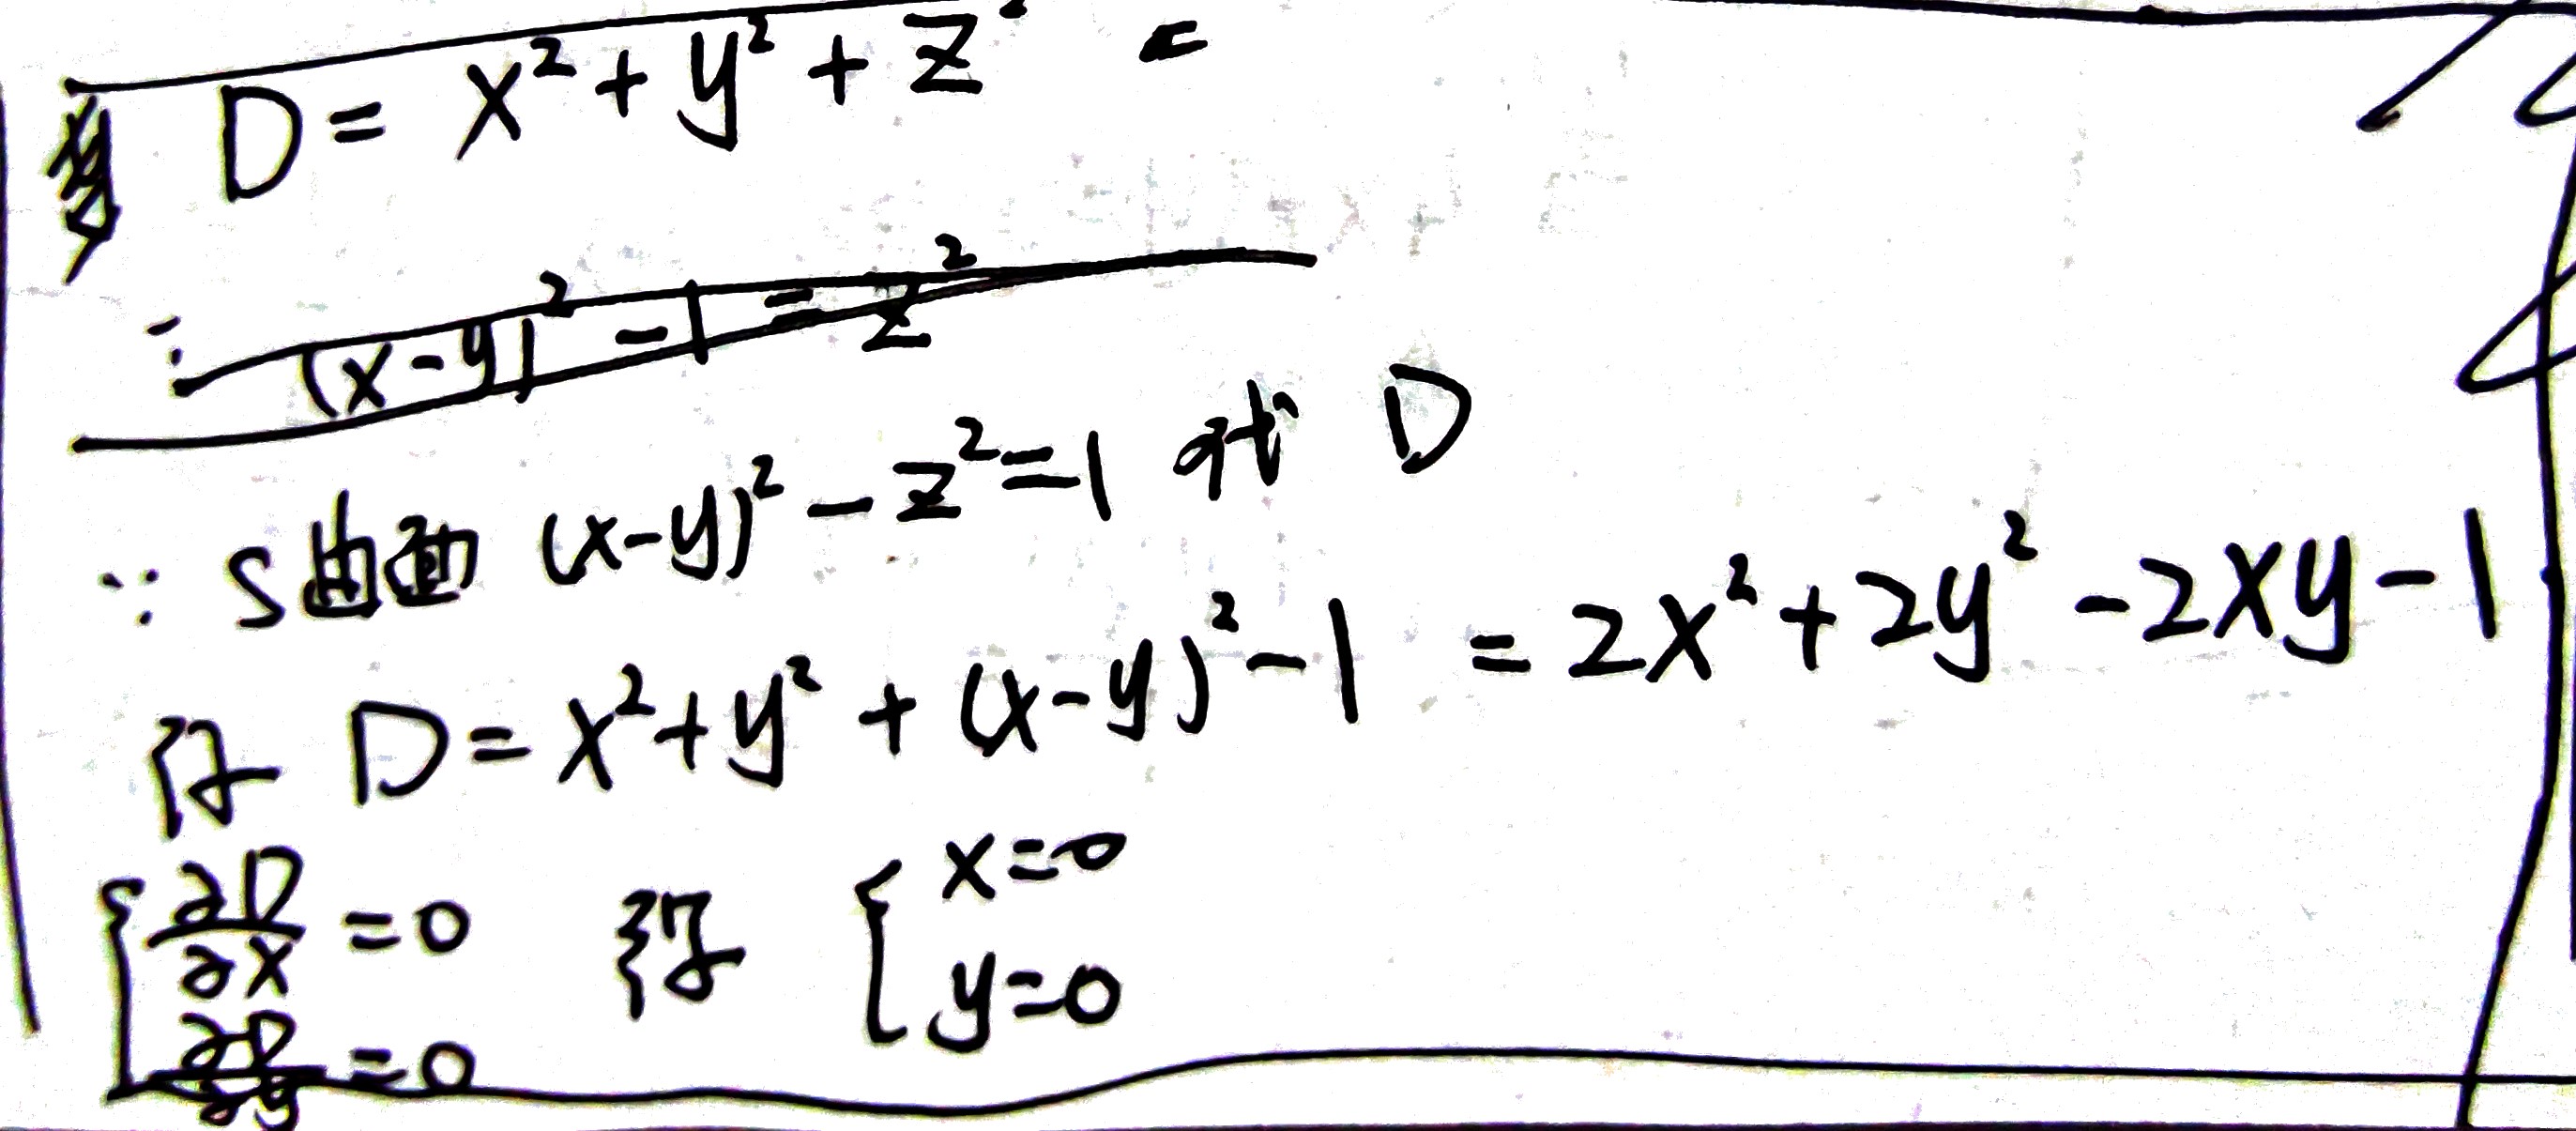 D = x² + y² + z² =
∵ (x-y)² - 1 = z²
∵ S曲面 (x-y)² - z² = 1 代 D
得 D = x² + y² + (x-y)² - 1 = 2x² + 2y² - 2xy - 1
{ ∂D/∂x = 0 得 { x=0
∂D/∂y = 0 y=0